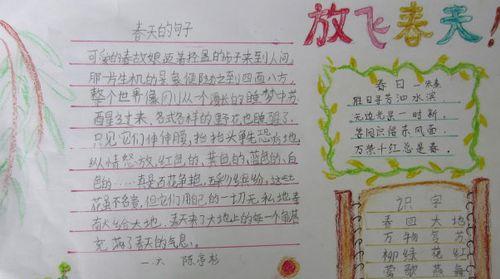 放飞春天!
春天的句子
可爱的春姑娘迈着轻盈的步子来到人间,
那一片生机的景象便随之到四面八方,
整个世界像刚从一个漫长的睡梦中苏
醒了过来,各式各样的野花也睡醒了.
只见它们伸伸腰,抬抬头,争先恐后地,
纵情怒放,红色的、黄色的、蓝色的、白
色的……真是百花争艳,五彩缤纷,这些
花虽不名贵,但它们用自己的一切无私地奉
献给大地.春天来了大地上的每一个角落
充满了春天的气息。
春日 —朱熹
胜日寻芳泗水滨
无边光景一时新
等闲识得东风面
万紫千红总是春。
识字
春回大地
万物复苏
柳绿花红
莺歌燕舞